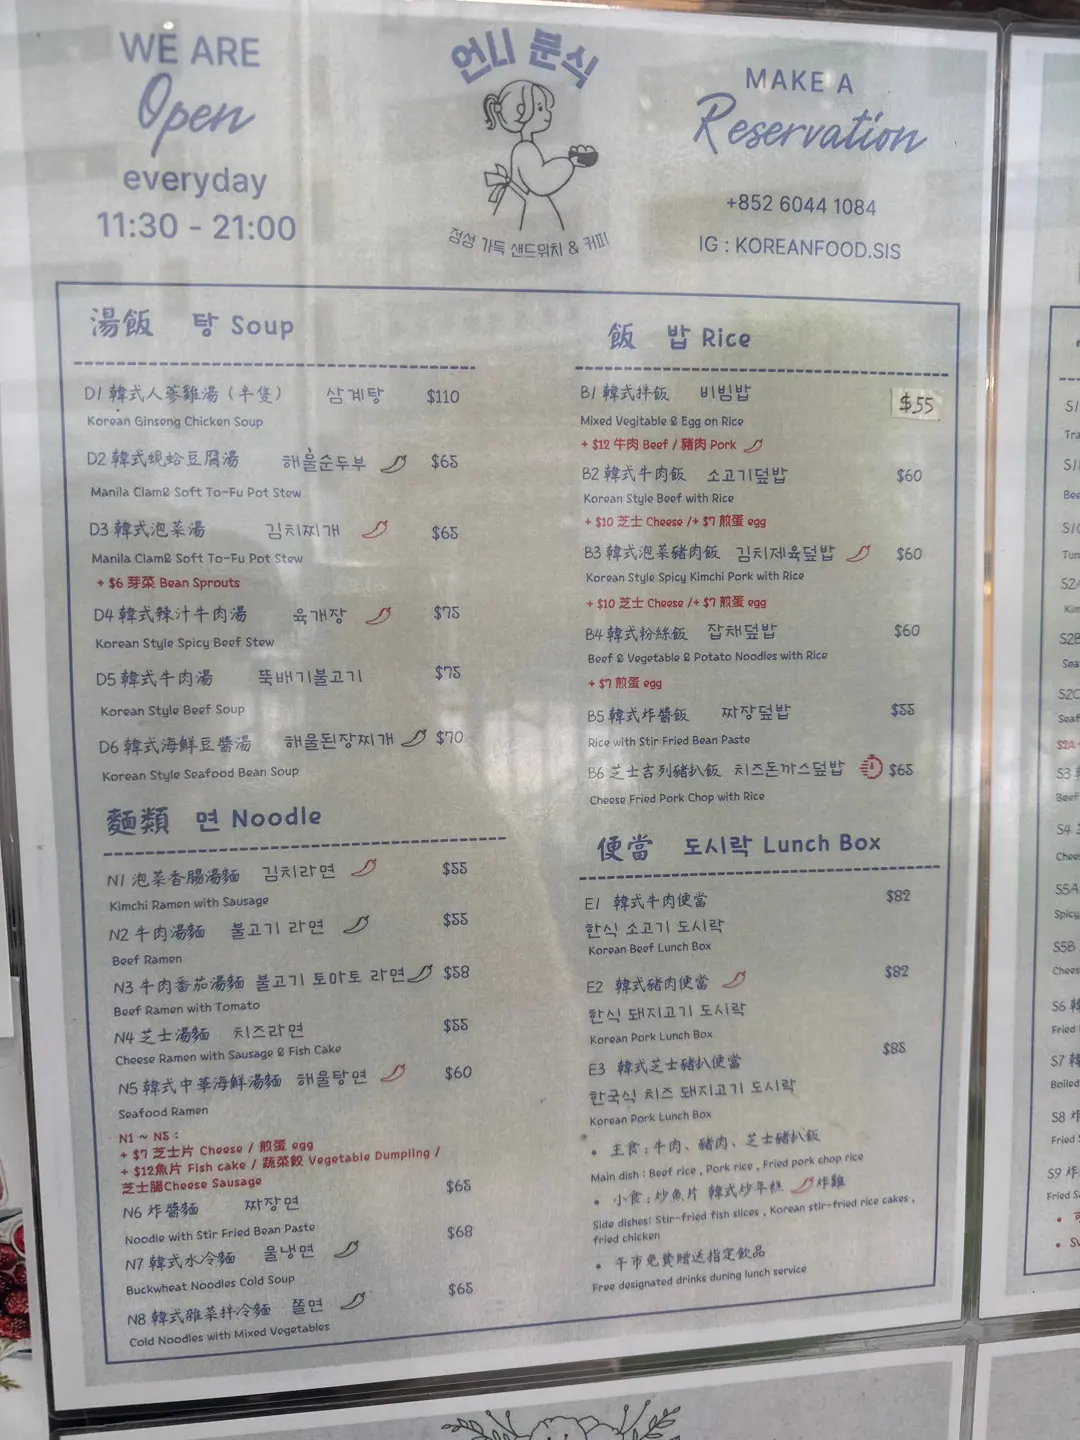 WE ARE
Open
everyday
11:30 - 21:00
언니 분식
정성 가득 샌드위치 & 커피
MAKE A
Reservation
+852 6044 1084
IG : KOREANFOOD.SIS
湯飯 탕 Soup
D1 韓式人蔘雞湯（半隻） 삼계탕 $110
Korean Ginseng Chicken Soup
D2 韓式蜆蛤豆腐湯 해물순두부 $65
Manila Clam& Soft To-Fu Pot Stew
D3 韓式泡菜湯 김치찌개 $65
Manila Clam& Soft To-Fu Pot Stew
+ $6 芽菜 Bean Sprouts
D4 韓式辣汁牛肉湯 육개장 $75
Korean Style Spicy Beef Stew
D5 韓式牛肉湯 뚝배기불고기 $75
Korean Style Beef Soup
D6 韓式海鮮豆醬湯 해물된장찌개 $70
Korean Style Seafood Bean Soup
麵類 면 Noodle
N1 泡菜香腸湯麵 김치라면 $55
Kimchi Ramen with Sausage
N2 牛肉湯麵 불고기 라면 $55
Beef Ramen
N3 牛肉番茄湯麵 불고기 토마토 라면 $58
Beef Ramen with Tomato
N4 芝士湯麵 치즈라면 $55
Cheese Ramen with Sausage & Fish Cake
N5 韓式中華海鮮湯麵 해물탕면 $60
Seafood Ramen
N1 ~ N5 :
+ $7 芝士片 Cheese / 煎蛋 egg
+ $12魚片 Fish cake / 蔬菜餃 Vegetable Dumpling /
芝士腸Cheese Sausage
N6 炸醬麵 짜장면 $65
Noodle with Stir Fried Bean Paste
N7 韓式水冷麵 물냉면 $68
Buckwheat Noodles Cold Soup
N8 韓式雜菜拌冷麵 쫄면 $65
Cold Noodles with Mixed Vegetables
飯 밥 Rice
B1 韓式拌飯 비빔밥 $55
Mixed Vegitable & Egg on Rice
+ $12 牛肉 Beef / 豬肉 Pork
B2 韓式牛肉飯 소고기덮밥 $60
Korean Style Beef with Rice
+ $10 芝士 Cheese /+ $7 煎蛋 egg
B3 韓式泡菜豬肉飯 김치제육덮밥 $60
Korean Style Spicy Kimchi Pork with Rice
+ $10 芝士 Cheese /+ $7 煎蛋 egg
B4 韓式粉絲飯 잡채덮밥 $60
Beef & Vegetable & Potato Noodles with Rice
+ $7 煎蛋 egg
B5 韓式炸醬飯 짜장덮밥 $55
Rice with Stir Fried Bean Paste
B6 芝士吉列豬扒飯 치즈돈까스덮밥 $65
Cheese Fried Pork Chop with Rice
便當 도시락 Lunch Box
E1 韓式牛肉便當 $82
한식 소고기 도시락
Korean Beef Lunch Box
E2 韓式豬肉便當 $82
한식 돼지고기 도시락
Korean Pork Lunch Box
E3 韓式芝士豬扒便當 $85
한국식 치즈 돼지고기 도시락
Korean Pork Lunch Box
• 主食 : 牛肉、豬肉、芝士豬扒飯
Main dish : Beef rice , Pork rice , Fried pork chop rice
• 小食 : 炒魚片 韓式炒年糕 炸雞
Side dishes: Stir-fried fish slices , Korean stir-fried rice cakes ,
fried chicken
• 午市免費贈送指定飲品
Free designated drinks during lunch service
S2A
S2B
S3
S4
S5A
Spicy
S5B
S6 韓
Fried
S7 韓
Boiled
S8 炸
Fried
S9 炸